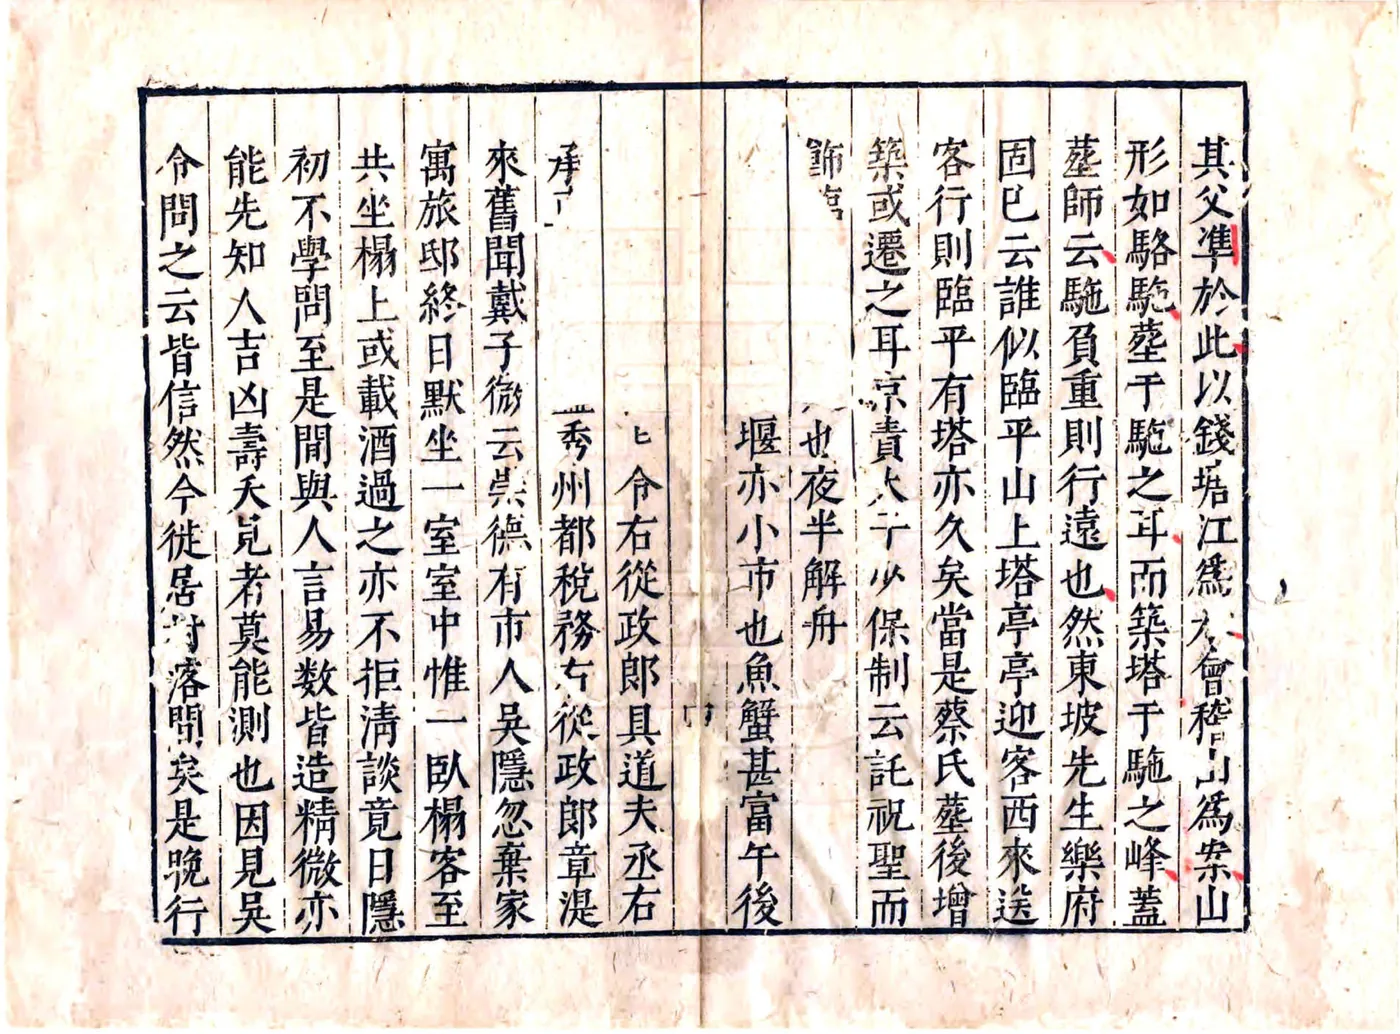 其父準於此以錢塘江爲水會稽山爲案山
形如駱駞塟于駞之耳而築塔于駞之峰蓋
塟師云駞負重則行遠也然東坡先生樂府
固已云誰似臨平山上塔亭亭迎客西來送
客行則臨平有塔亦久矣當是蔡氏塟後增
築或遷之耳京責太子少保制云託祝聖而
飾臨也夜半解舟
堰亦小市也魚蟹甚富午後
令右從政郎具道夫丞右
承秀州都稅務右從政郎章湜
來舊聞戴子微云崇德有市人吳隱忽棄家
寓旅邸終日默坐一室室中惟一臥榻客至
共坐榻上或載酒過之亦不拒清談竟日隱
初不學問至是間與人言易数皆造精微亦
能先知人吉凶壽夭見者莫能測也因見吳
令問之云皆信然今徙居村落間矣是晚行